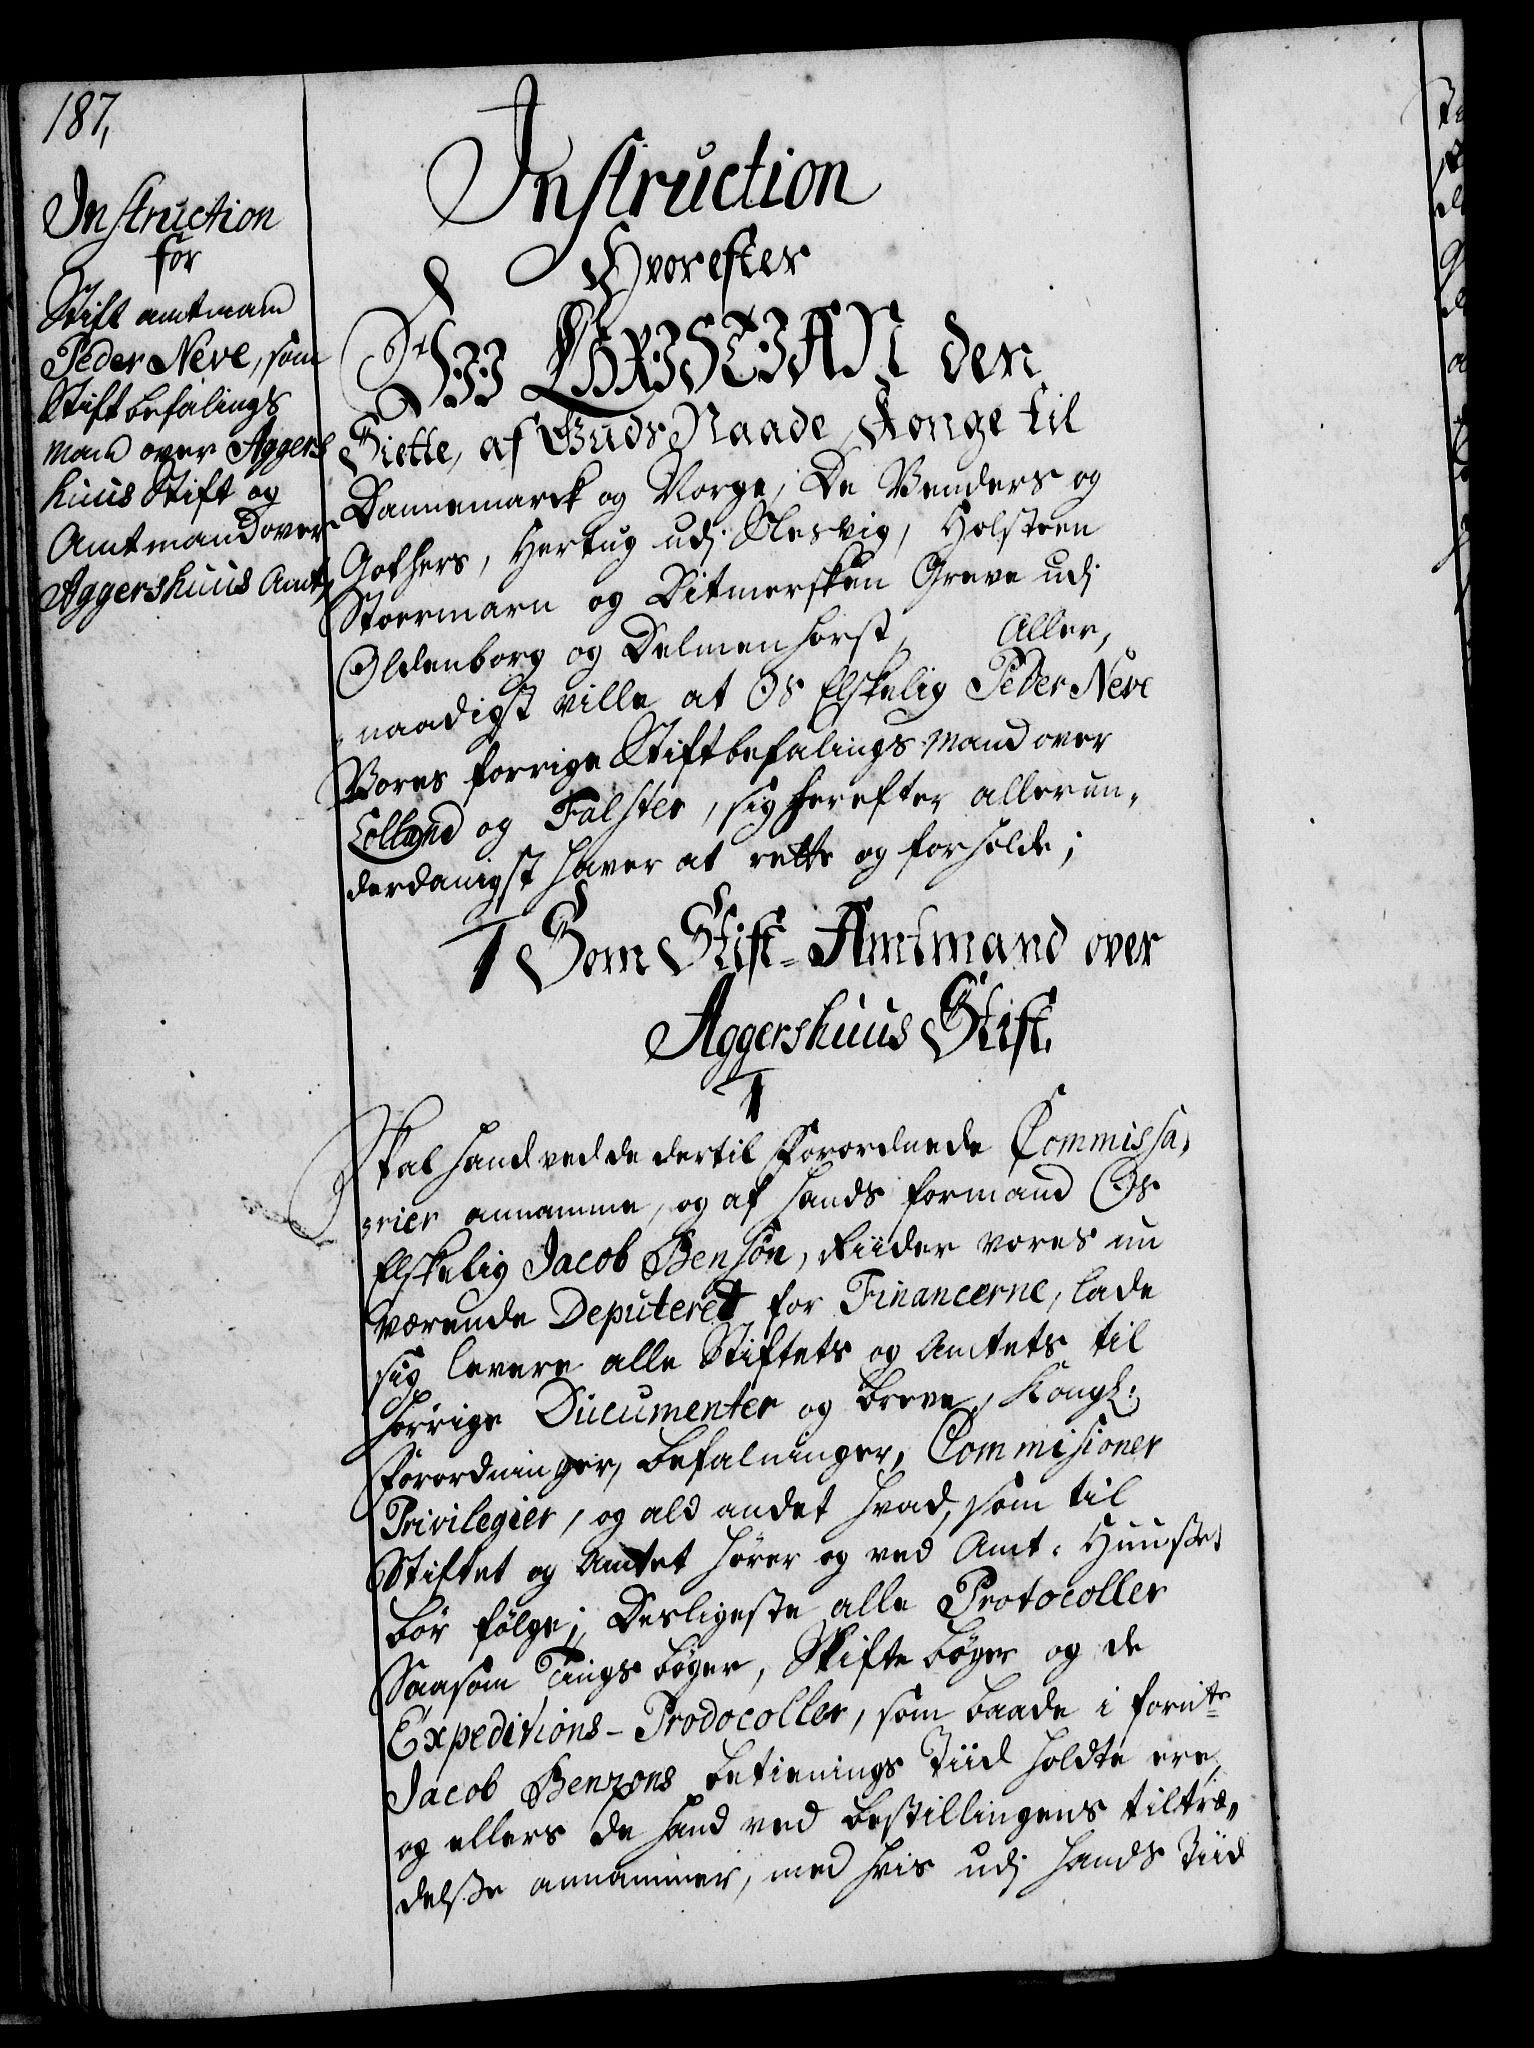 187,
Instruction
for
Stift amtmand
Peder Neve, som
Stiftbefalings
mand over Aggers
huus Stift og
Amtmand over
Aggershuus Amt,
Instruction
Hvorefter
Wii CHRISTIAN den
Siette, af Guds Naade, Konge til
Dannemarck og Norge, De Venders og
Gothers, Hertug udj Slesvig, Holsteen
Stormarn og Ditmersken Greve udj
Oldenborg og Delmenhorst, Aller,
naadigst ville at Os Elskelig Peder Neve
Vores forrige Stiftbefalings-Mand over
Lolland og Falster, sig herefter allerun,
derdanigst haver at rette og forholde;
Som Stift-Amtmand over
Aggershuus Stift.
1
Skal hand ved de dertil Forordnede Commissa,
rier annamme, og af hands formand Os
Elskelig Jacob Bensön, Riider vores nu
værende Deputeret for Financerne, lade
sig levere alle Stiftets og Amtets til
hörrige Ducumenter og breve, Kongl:
Forordninger, befalninger, Commisioner
Privilegier, og ald andet hvad, som til
Stiftet og Amtet hörer og ved Amt-Huuset
bör fölge; Desligeste alle Protocoller
Saasom Tings böger, Skifte böger og de
Expeditions-Prodocoller, som baade i fornte
Jacob Benzons betienings Tiid holdte ere,
og ellers de hand ved bestillingens tiltræ,
delse annammer, med hvis udj hands Tiid